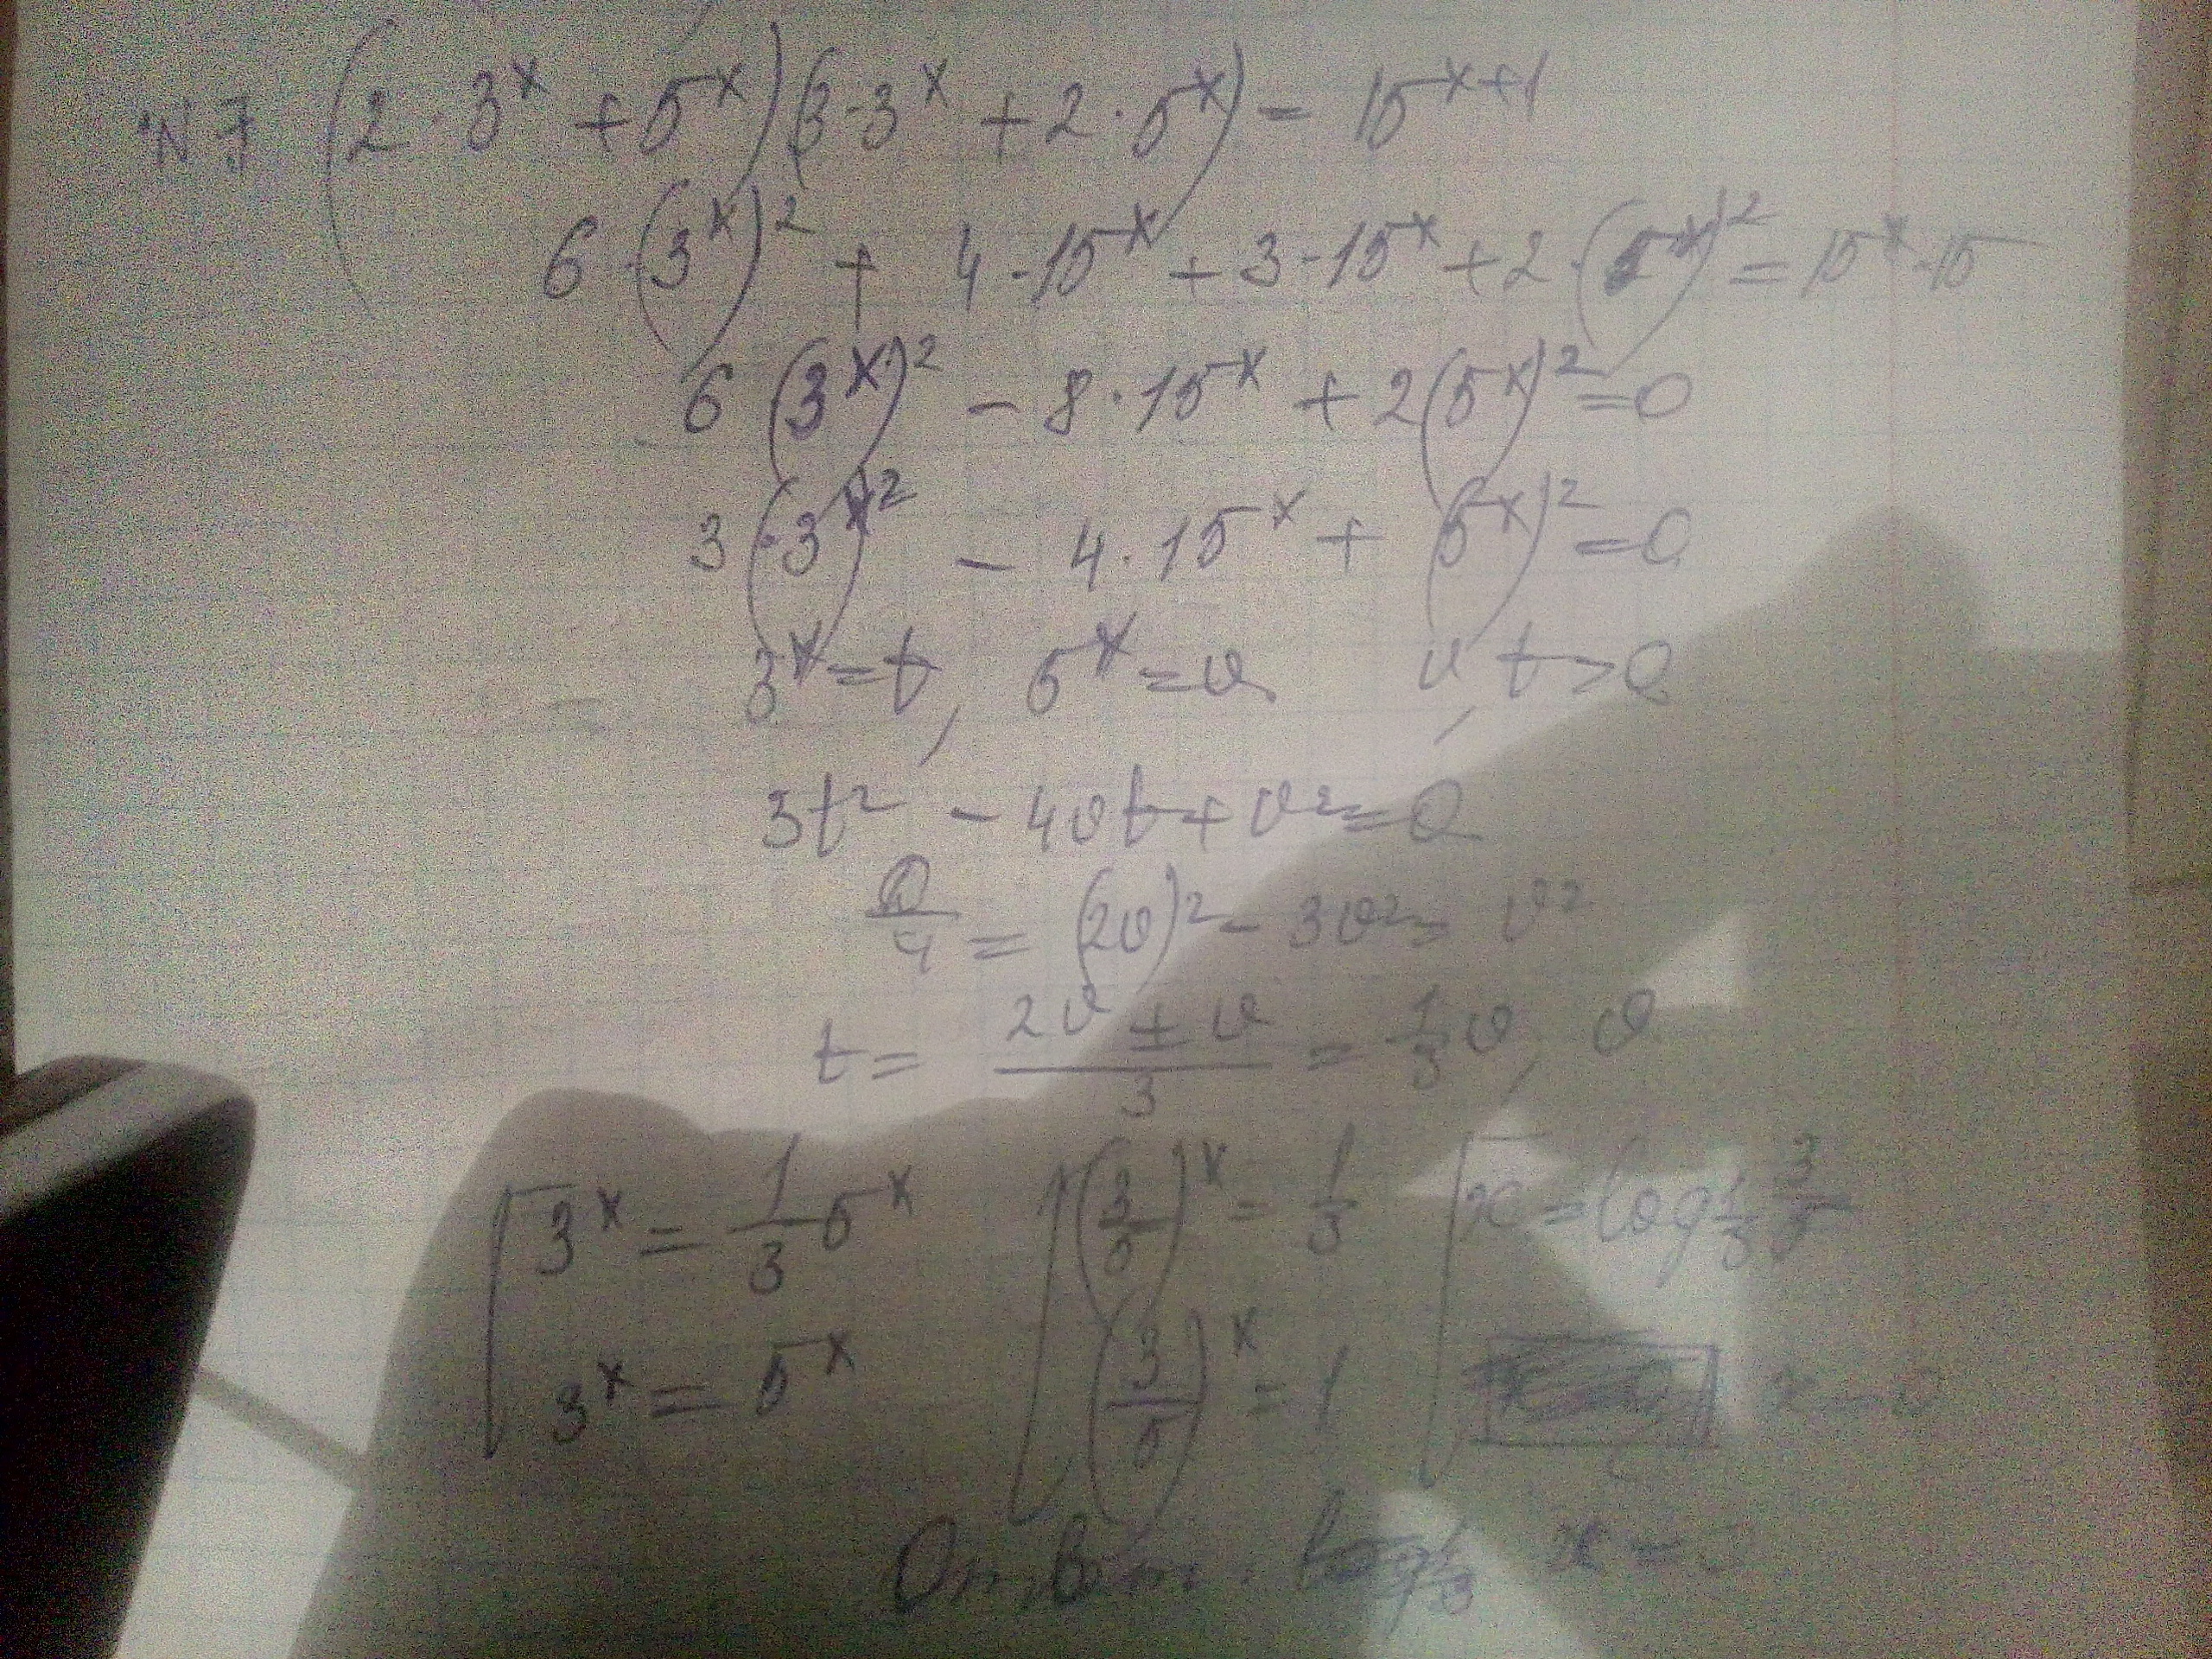 №7 (2·3^x + 5^x)(3·3^x + 2·5^x) = 15^{x+1}
6·(3^x)^2 + 4·15^x + 3·15^x + 2·(5^x)^2 = 15^x·15
6(3^x)^2 - 8·15^x + 2(5^x)^2 = 0
3(3^x)^2 - 4·15^x + (5^x)^2 = 0
3^x = t, 5^x = v v, t > 0
3t^2 - 4vt + v^2 = 0
D/4 = (2v)^2 - 3v^2 = v^2
t = (2v ± v)/3 = 1/3 v, v
[ 3^x = 1/3 5^x [ (3/5)^x = 1/3 [ x = log_{1/3} 3/5
3^x = 5^x (3/5)^x = 1 x = 0
Ответ: